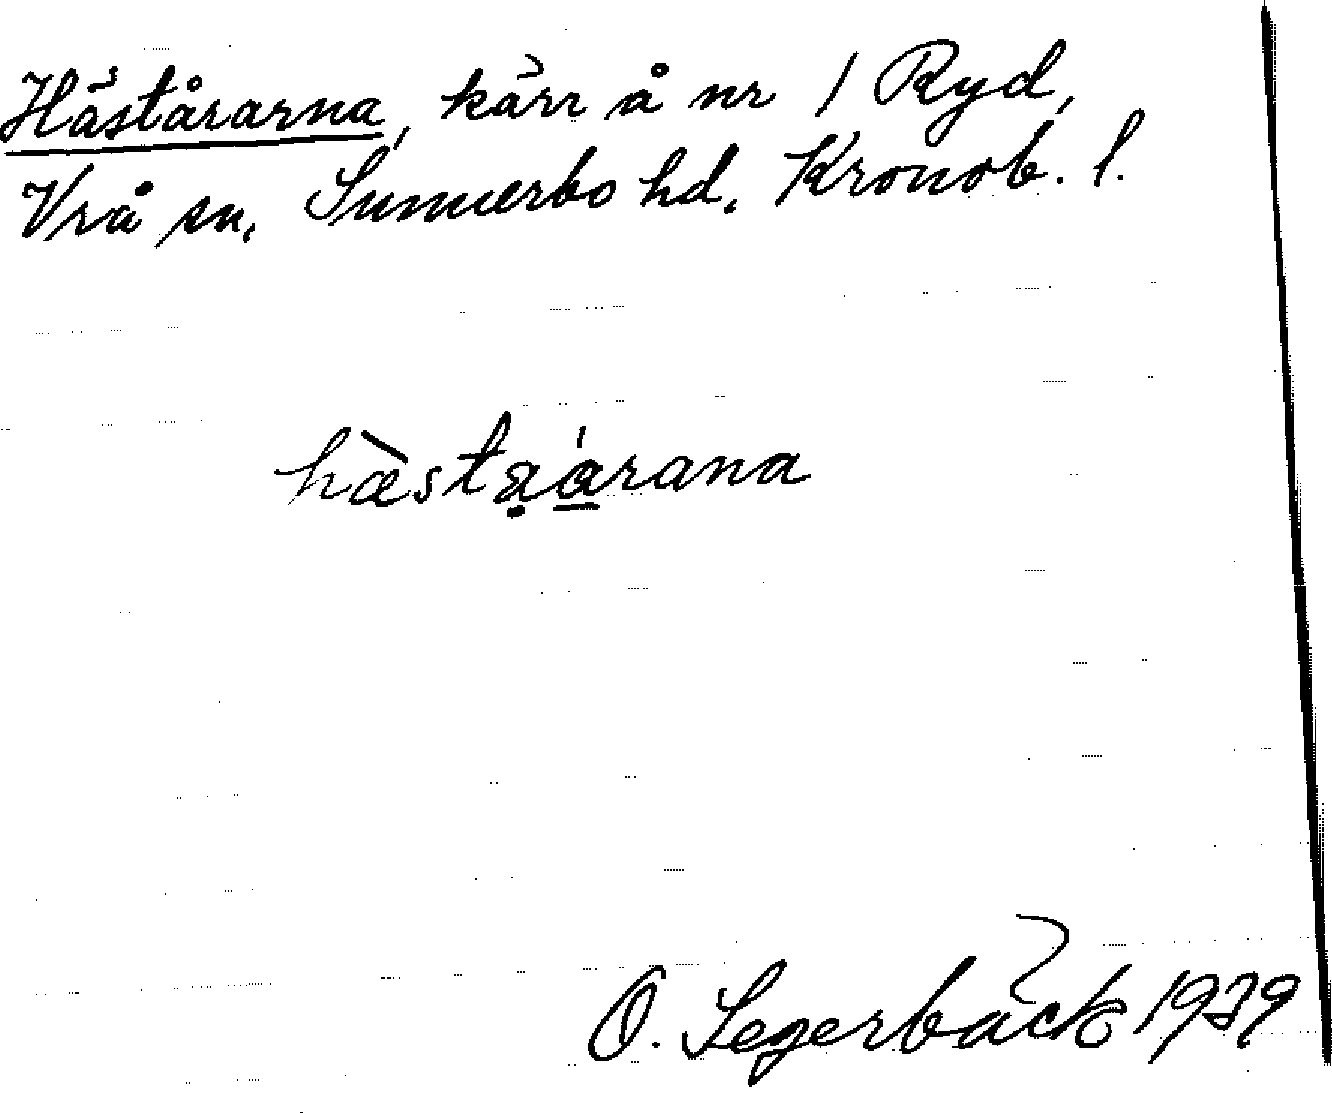 Hästårarna, kärr å nr 1 Ryd,
Vrå sn, Sunnerbo hd, Kronob. l.
hæ̀stạá̱rana
O. Segerbäck 1939